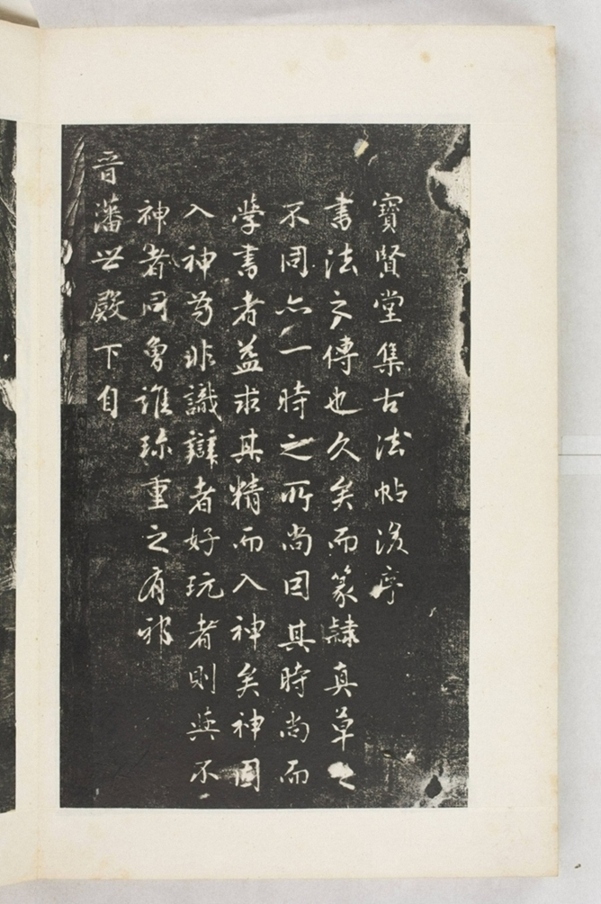 寶賢堂集古法帖後序
書法之傳也久矣而篆隸真草之
不同亦一時之所尚因其時尚而
學書者益求其精而入神矣神固
入神苟非識辯者好玩者則與不
神者同魯誰珍重之有邪
晉藩世殿下自